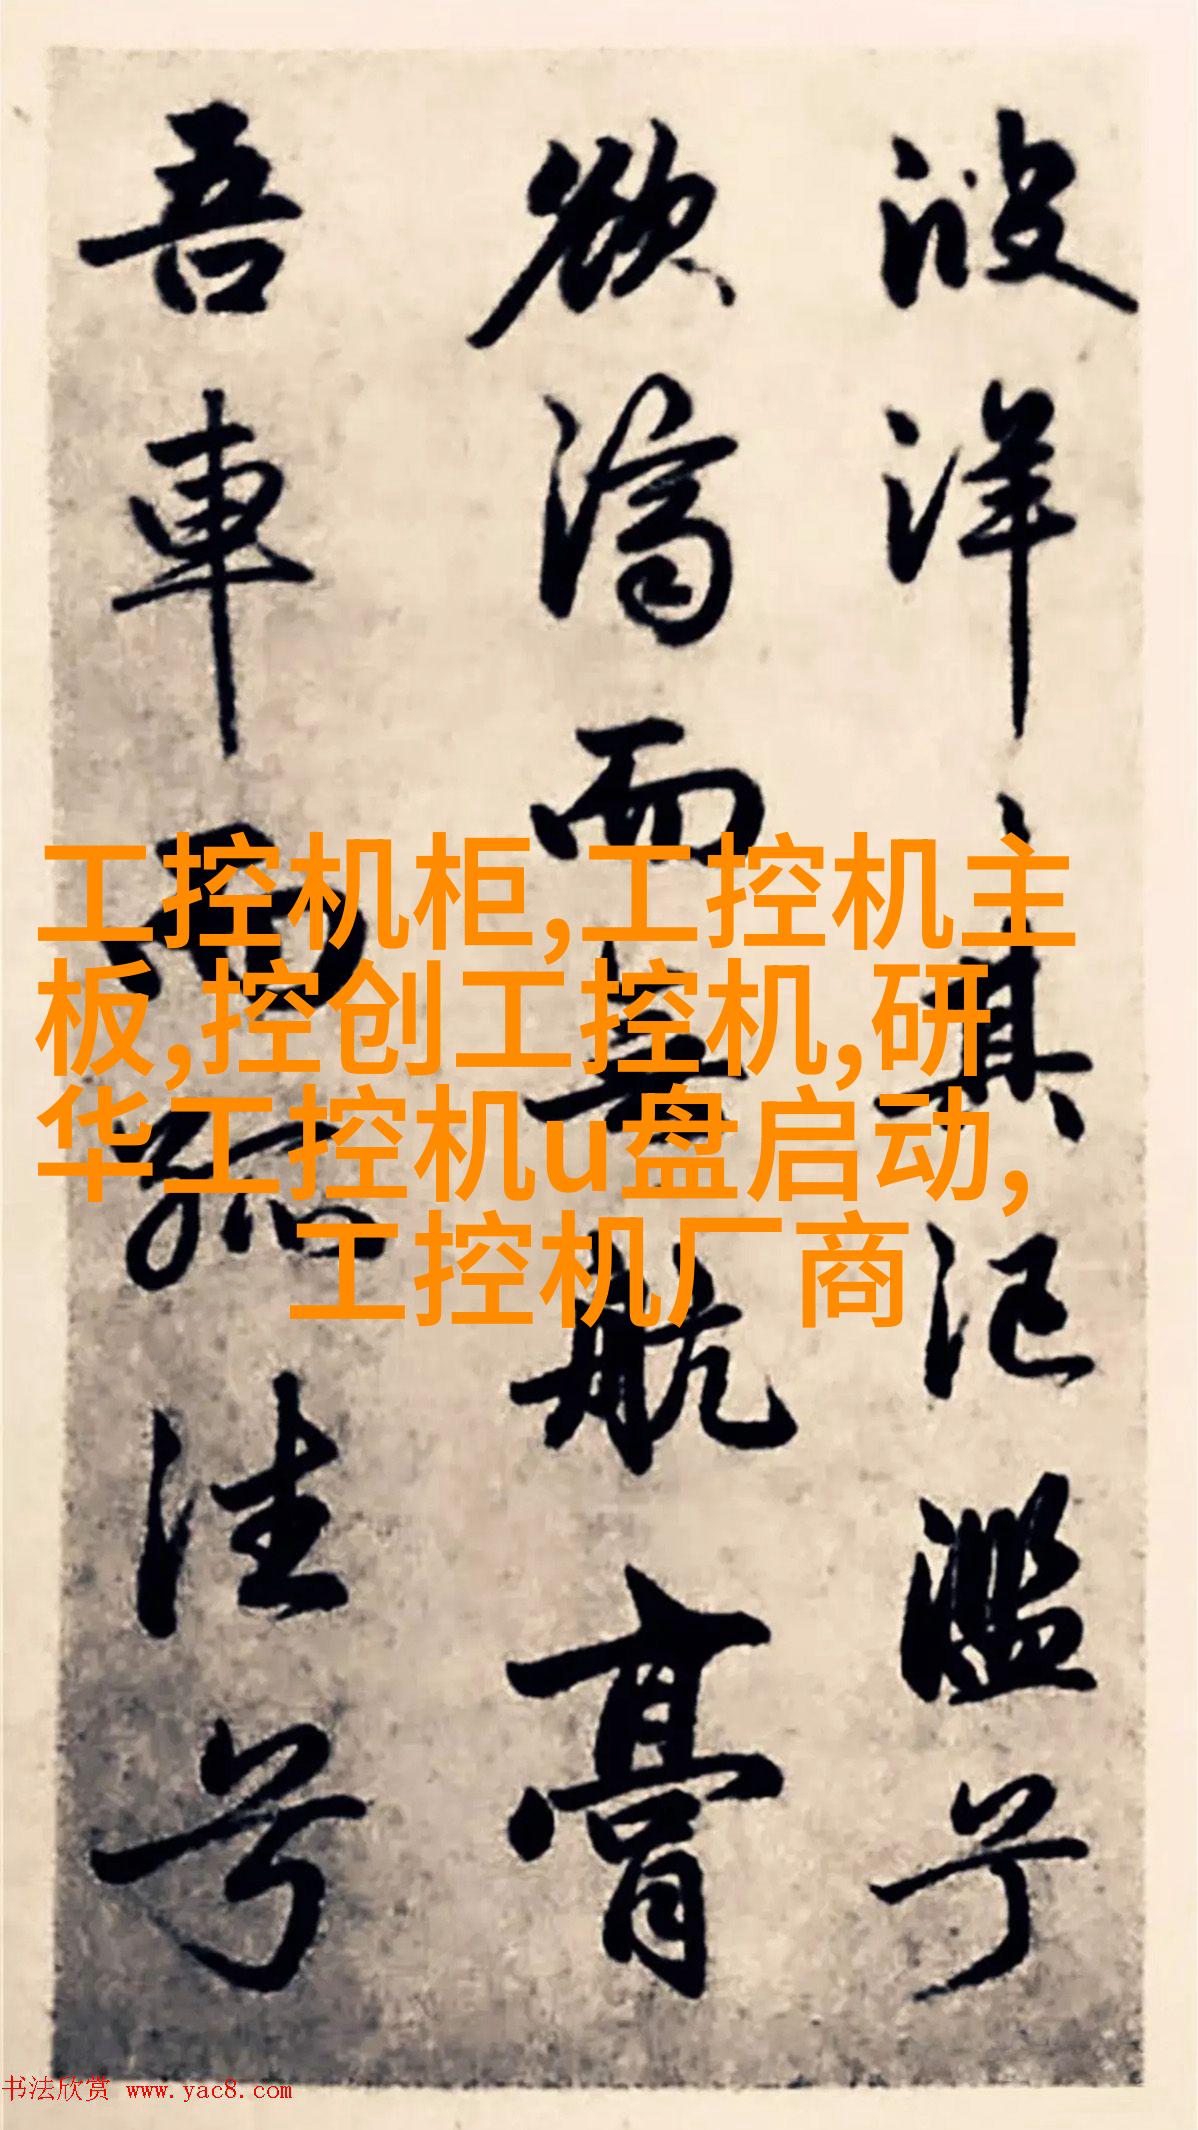 波洋其氾濫兮
欲濟而無航膏
吾車而孤往兮
工控机柜,工控机主
板,控创工控机,研
华工控机u盘启动,
工控机厂商
书法欣赏 www.yac8.com